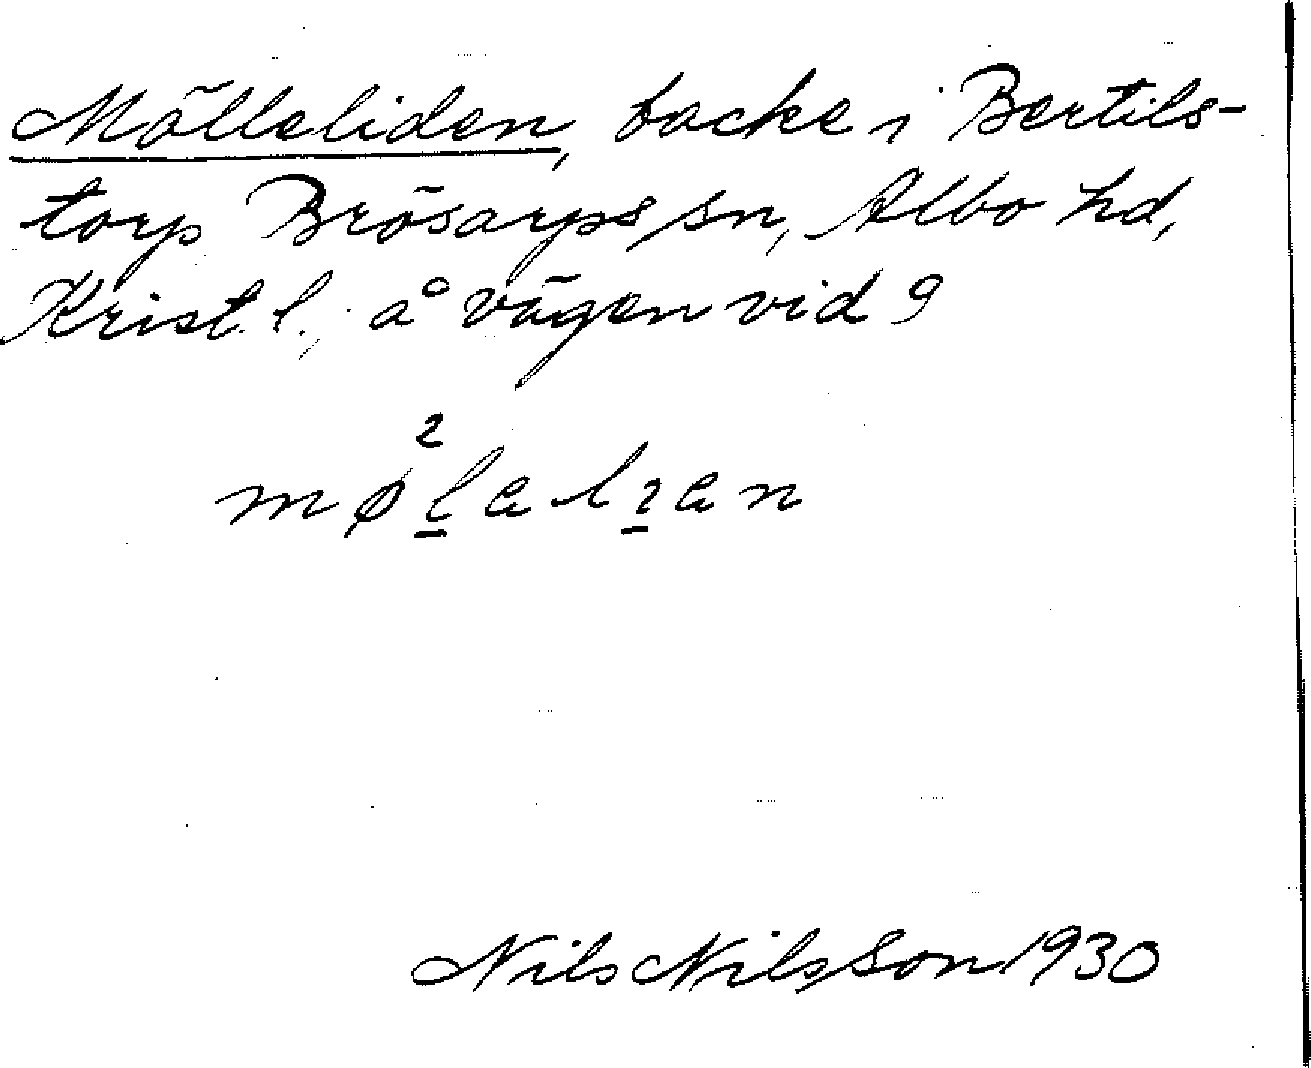 Mölleliden, backe i Bertils-
torp Brösarps sn, Albo hd,
Krist. l., å vägen vid 9
2
Nils Nilsson 1930